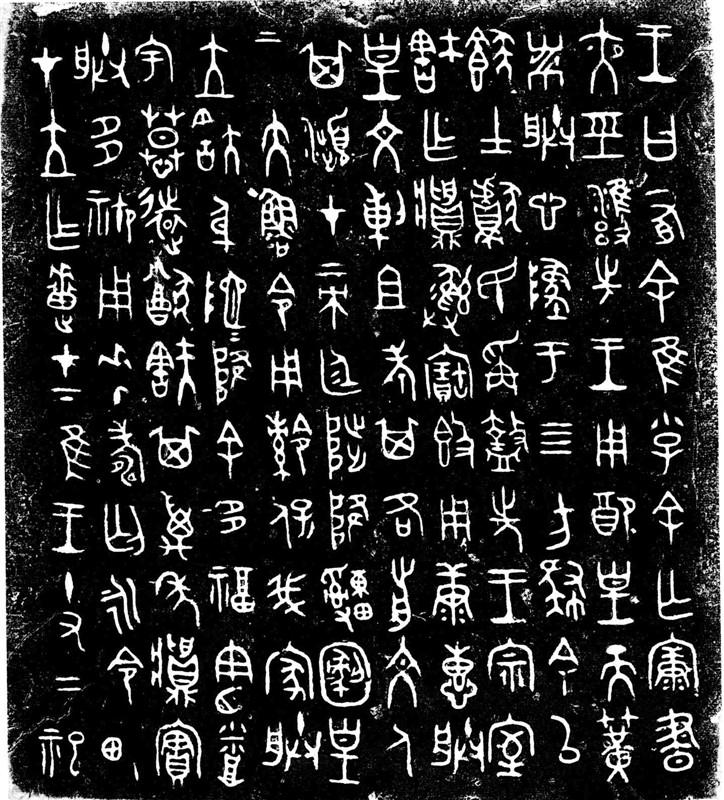 王曰有余隹小子余亡康晝
夜巠雍先王用配皇天簧
黹朕心墜于四方肆余以
士獻民爯盩先王宗室
㝬作𩰫彝寶簋用康惠朕
皇文剌祖考其各前文人
其瀕在帝廷陟降申皇
帝大魯令用保我家朕
立㝬身阤阤降余多福憲烝
宇慕遠猷㝬其萬年𩰫實
朕多禦用𠦪壽匄永令畯
在立作疐在下隹王十又二祀